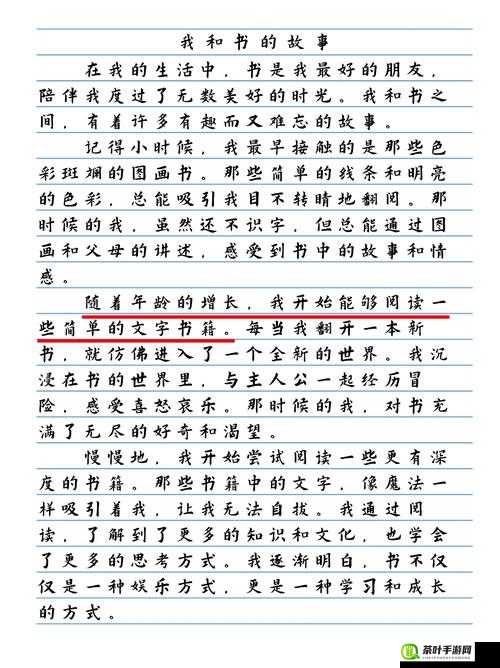 我和书的故事
在我的生活中，书是我最好的朋友，
陪伴我度过了无数美好的时光。我和书之
间，有着许多有趣而又难忘的故事。
记得小时候，我最早接触的是那些色
彩斑斓的图画书。那些简单的线条和明亮
的色彩，总能吸引我目不转睛地翻阅。那
时候的我，虽然还不识字，但总能通过图
画和父母的讲述，感受到书中的故事和情
感。
随着年龄的增长，我开始能够阅读一
些简单的文字书籍。每当我翻开一本新
书，就仿佛进入了一个全新的世界。我沉
浸在书的世界里，与主人公一起经历冒
险，感受喜怒哀乐。那时候的我，对书充
满了无尽的好奇和渴望。
慢慢地，我开始尝试阅读一些更有深
度的书籍。那些书籍中的文字，像魔法一
样吸引着我，让我无法自拔。我通过阅
读，了解到了更多的知识和文化，也学会
了更多的思考方式。我逐渐明白，书不仅
仅是一种娱乐方式，更是一种学习和成长
的方式。
茶叶手游网